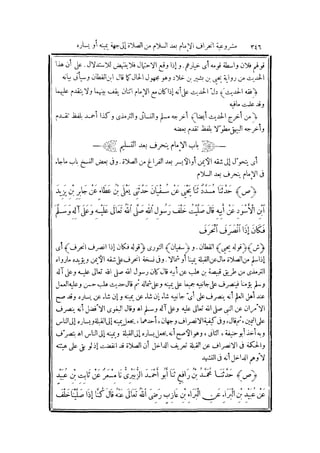 ٣٤٦ مشروعية انحراف الإمام بعد السلام من الصلاة إلى جهة يمينه أو يساره
قولهم فلان واسطة قومه أى خيارهم. وإذا وقع الاحتمال فلا ينتهض للاستدلال. على أن هذا
الحديث من رواية يحيى بن بشير بن خلاد وهو مجهول الحال كما قال ابن القطان وسيأتى بيانه
﴿فقه الحديث﴾ دل الحديث على أنه إذا كان مع الإمام اثنان يقف بينهما ولا يتقدم عليهما
وقد علمت مافيه
﴿من أخرج الحديث أيضا﴾ أخرجه مسلم والنسائى والترمذى وكذا أحمد بلفظ تقدم
وأخرجه البيهقى مطولا بلفظ تقدم بعضه
باب الإمام ينحرف بعد التسليم
أى يتحول إلى شقه الأيمن أو الأيسر بعد الفراغ من الصلاة. وفى بعض النسخ باب ماجاء
فى الإمام ينحرف بعد السلام
﴿ص﴾ حَدَّثَنَا مُسَدَّدٌ ثَنَا يَحْيَى عَنْ سُفْيَانَ حَدَّثَنِى يَعْلَى بْنُ عَطَاءٍ عَنْ جَابِرِ بْنِ يَزِيدَ
ابْنِ الْأَسْوَدِ عَنْ أَبِيهِ قَالَ صَلَّيْتُ خَلْفَ رَسُولِ اللهِ صَلَّى اللهُ تَعَالَى عَلَيْهِ وَعَلَى آلِهِ وَسَلَّمَ
فَكَانَ إِذَا انْصَرَفَ انْحَرَفَ
﴿ش﴾ ﴿قوله يحيى﴾ القطان. و ﴿سفيان﴾ الثورى ﴿قوله فكان إذا انصرف انحرف﴾ أى
إذا سلم من الصلاة مال عن القبلة يمينا أو شمالا. وفى نسخة انحرف على شقه الأيمن ويؤيده مارواه
الترمذى من طريق قبيصة بن هلب عن أبيه قال كان رسول الله صلى الله تعالى عليه وعلى آله
وسلم يؤمنا فينصرف على جانبيه جميعا على يمينه وعلى شماله ثم قال حديث هلب حسن وعليه العمل
عند أهل العلم أنه ينصرف على أىّ جانبيه شاء إن شاء عن يمينه وإن شاء عن يساره وقد صح
الأمران عن النبى صلى الله تعالى عليه وعلى آله وسلم اه وقال البغوى الأفضل أنه ينصرف
على اليمين، ثم قال، وفى كيفية الانصراف وجهان، أحدهما، يجعل يمينه إلى القبلة ويساره إلى الناس
وبه أخذ أبو حنيفة، الثانى، وهو الأصح أنه يجعل يساره إلى القبلة ويمينه إلى الناس اه بتصرّف
والحكمة فى الانصراف عن القبلة تعريف الداخل أن الصلاة قد انقضت إذ لو بقى على هيئته
لأوهم الداخل أنه فى التشهد
﴿ص﴾ حَدَّثَنَا مُحَمَّدُ بْنُ رَافِعٍ ثَنَا أَبُو أَحْمَدَ الزُّبَيْرِىُّ نَا مِسْعَرٌ عَنْ ثَابِتِ بْنِ عُبَيْدٍ
عَنْ عُبَيْدِ بْنِ الْبَرَاءِ عَنِ الْبَرَاءِ بْنِ عَازِبٍ رَضِىَ اللهُ تَعَالَى عَنْهُ قَالَ كُنَّا إِذَا صَلَّيْنَا خَلْفَ